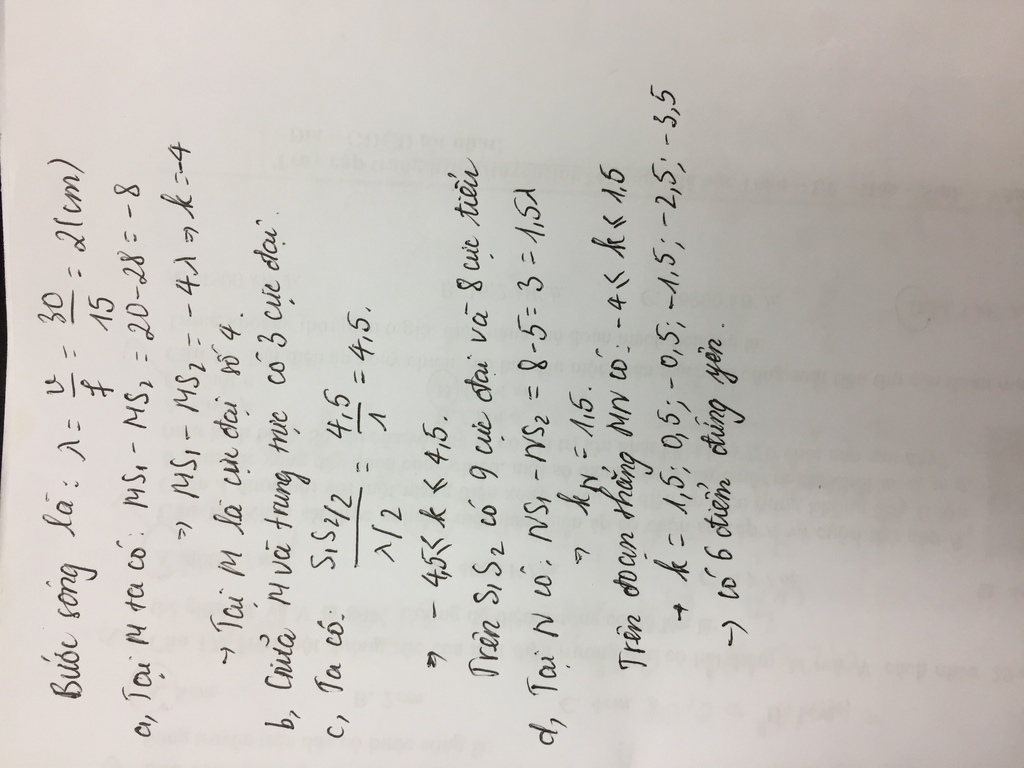 Bước sóng là: λ = v/f = 30/15 = 2(cm)
a, Tại M ta có: MS₁ - MS₂ = 20-28 = -8
=> MS₁ - MS₂ = -4λ => k = -4
→ Tại M là cực đại số 4.
b, Giữa M và trung trực có 3 cực đại.
c, Ta có: (S₁S₂/2)/(λ/2) = 4,5/1 = 4,5.
=> - 4,5 ≤ k ≤ 4,5.
Trên S₁S₂ có 9 cực đại và 8 cực tiểu
d, Tại N có: NS₁ - NS₂ = 8-5 = 3 = 1,5λ
=> k_N = 1,5.
Trên đoạn thẳng MN có: -4 ≤ k ≤ 1,5
→ k = 1,5; 0,5; -0,5; -1,5; -2,5; -3,5
→ có 6 điểm đứng yên.